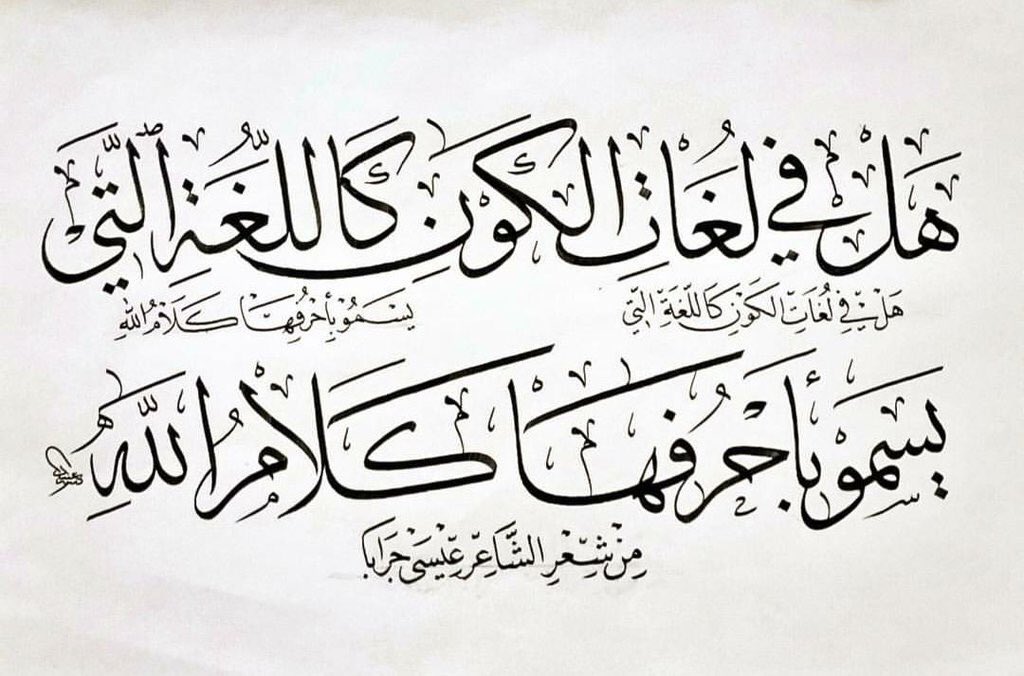 هَلْ فِي لُغَاتِ الْكَوْنِ كَاللُّغَةِ ٱلَّتِي
هَلْ فِي لُغَاتِ الْكَوْنِ كَاللُّغَةِ الَّتِي يَسْمُو بِأَحْرُفِهَا كَلَامُ اللهِ
يَسْمُو بِأَحْرُفِهَا كَلَامُ اللَّهِ
مِنْ شِعْرِ الشَّاعِرِ عِيسَى جَرَابا